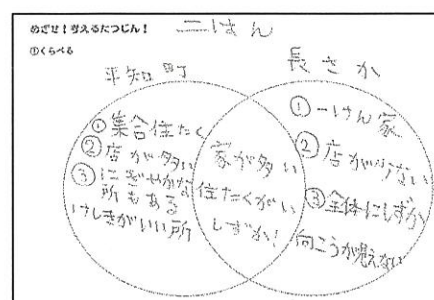 めざせ！考えるたつじん！
①くらべる
二はん
平知町
長さか
①集合住たく
②店が多い
③にぎやかな
所もある
けしきがいい所
家が多い
住たくがい
しずか！
①一けん家
②店が少ない
③全体にしずか
向こうが見えない